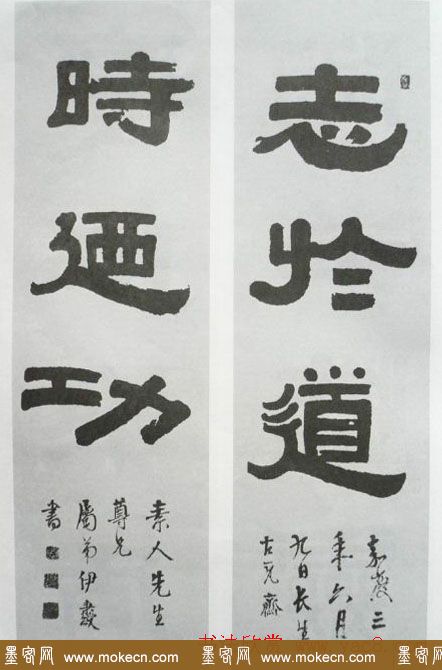 志於道
嘉慶三
年六月
九日長生
古瓦齋
時廼功
素人先生
尊兄
屬弟伊秉綬
書
墨客网 www.mokecn.com 墨客网 www.mokecn.com 墨客网